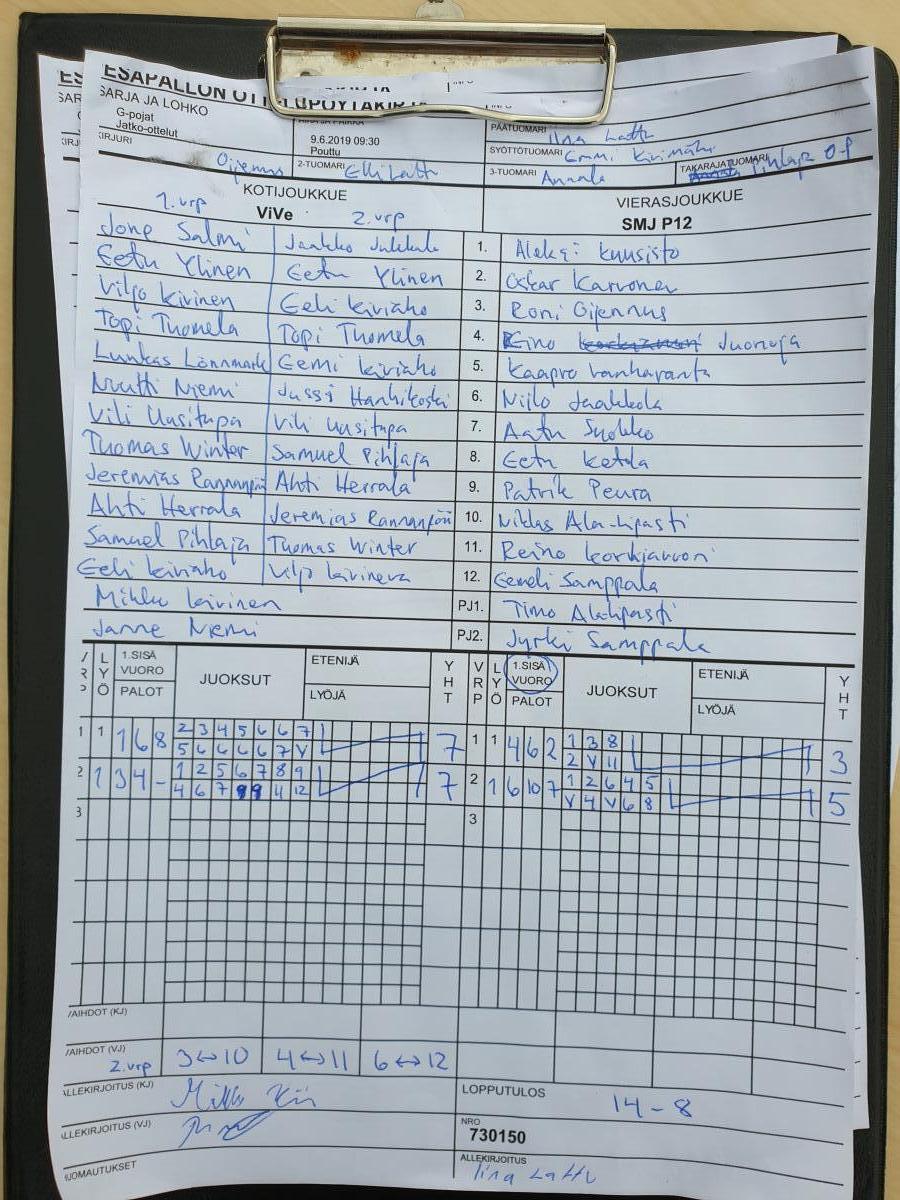 ESAPALLON OTTELUPÖYTÄKIRJA
SARJA JA LOHKO
G-pojat
Jatko-ottelut
9.6.2019 09:30
Pouttu
PÄÄTUOMARI Iina Lattu
SYÖTTÖTUOMARI Emmi Kivimäki
KIRJURI Oijennus 2-TUOMARI Elli Lattu 3-TUOMARI Annala TAKARAJATUOMARI Pihlaja O-P
KOTIJOUKKUE VIERASJOUKKUE
1.vrp ViVe 2.vrp SMJ P12
Jone Salmi Jaakko Jukkala 1. Aleksi Kuusisto
Eetu Ylinen Eetu Ylinen 2. Oskar Karvonen
Viljo Kivinen Eeli Kiviaho 3. Roni Oijennus
Topi Tuomela Topi Tuomela 4. Eino Juonoja
Luukas Lönnmark Eemi Kiviaho 5. Kaapro Vanharanta
Nuutti Niemi Jussi Hanhikoski 6. Niilo Jaakkola
Vili Uusitupa Vili Uusitupa 7. Aatu Suokko
Thomas Winter Samuel Pihlaja 8. Eetu Ketola
Jeremias Rannanpää Ahti Herrala 9. Patrik Peura
Ahti Herrala Jeremias Rannanpää 10. Niklas Ala-Lipasti
Samuel Pihlaja Thomas Winter 11. Reino Korkiavuori
Eeli Kiviaho Viljo Kivinen 12. Eemeli Samppala
Mikko Kivinen PJ1. Timo Ala-Lipasti
Janne Niemi PJ2. Jyrki Samppala
LYÖ 1.SISÄ VUORO PALOT JUOKSUT ETENIJÄ LYÖJÄ YHT VRP LYÖ 1.SISÄ VUORO PALOT JUOKSUT ETENIJÄ LYÖJÄ YHT
1 1 1 6 8 2 3 4 5 6 6 7 7 1 1 4 6 2 1 3 8 3
5 6 6 6 6 7 V 2 V 11
2 1 3 4 - 1 2 5 6 7 8 9 7 2 1 6 10 7 1 2 6 4 5 5
4 6 7 9 9 11 12 V 4 V 6 8
3 3
VAIHDOT (KJ)
VAIHDOT (VJ) 2.vrp 3↔10 4↔11 6↔12
ALLEKIRJOITUS (KJ)
LOPPUTULOS 14-8
ALLEKIRJOITUS (VJ)
NRO
730150
HUOMAUTUKSET
ALLEKIRJOITUS Iina Lattu